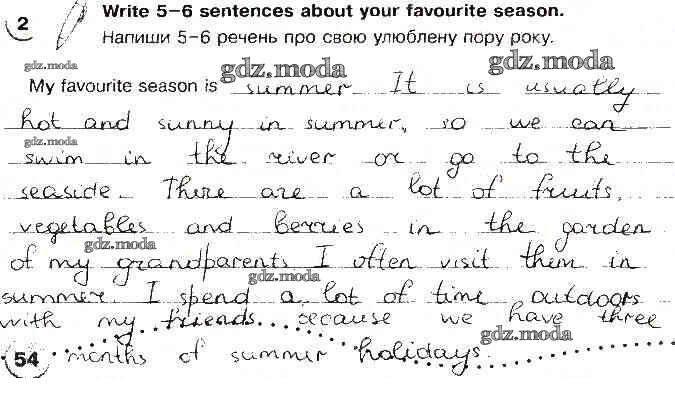 2 Write 5–6 sentences about your favourite season.
Напиши 5–6 речень про свою улюблену пору року.
gdz.moda gdz.moda gdz.moda
My favourite season is summer. It is usually
hot and sunny in summer, so we can
gdz.moda
swim in the river or go to the
seaside. There are a lot of fruits,
vegetables and berries in the garden
gdz.moda
of my grandparents. I often visit them in
gdz.moda
summer. I spend a lot of time outdoors
with my friends because we have three
gdz.moda
54 months of summer holidays.